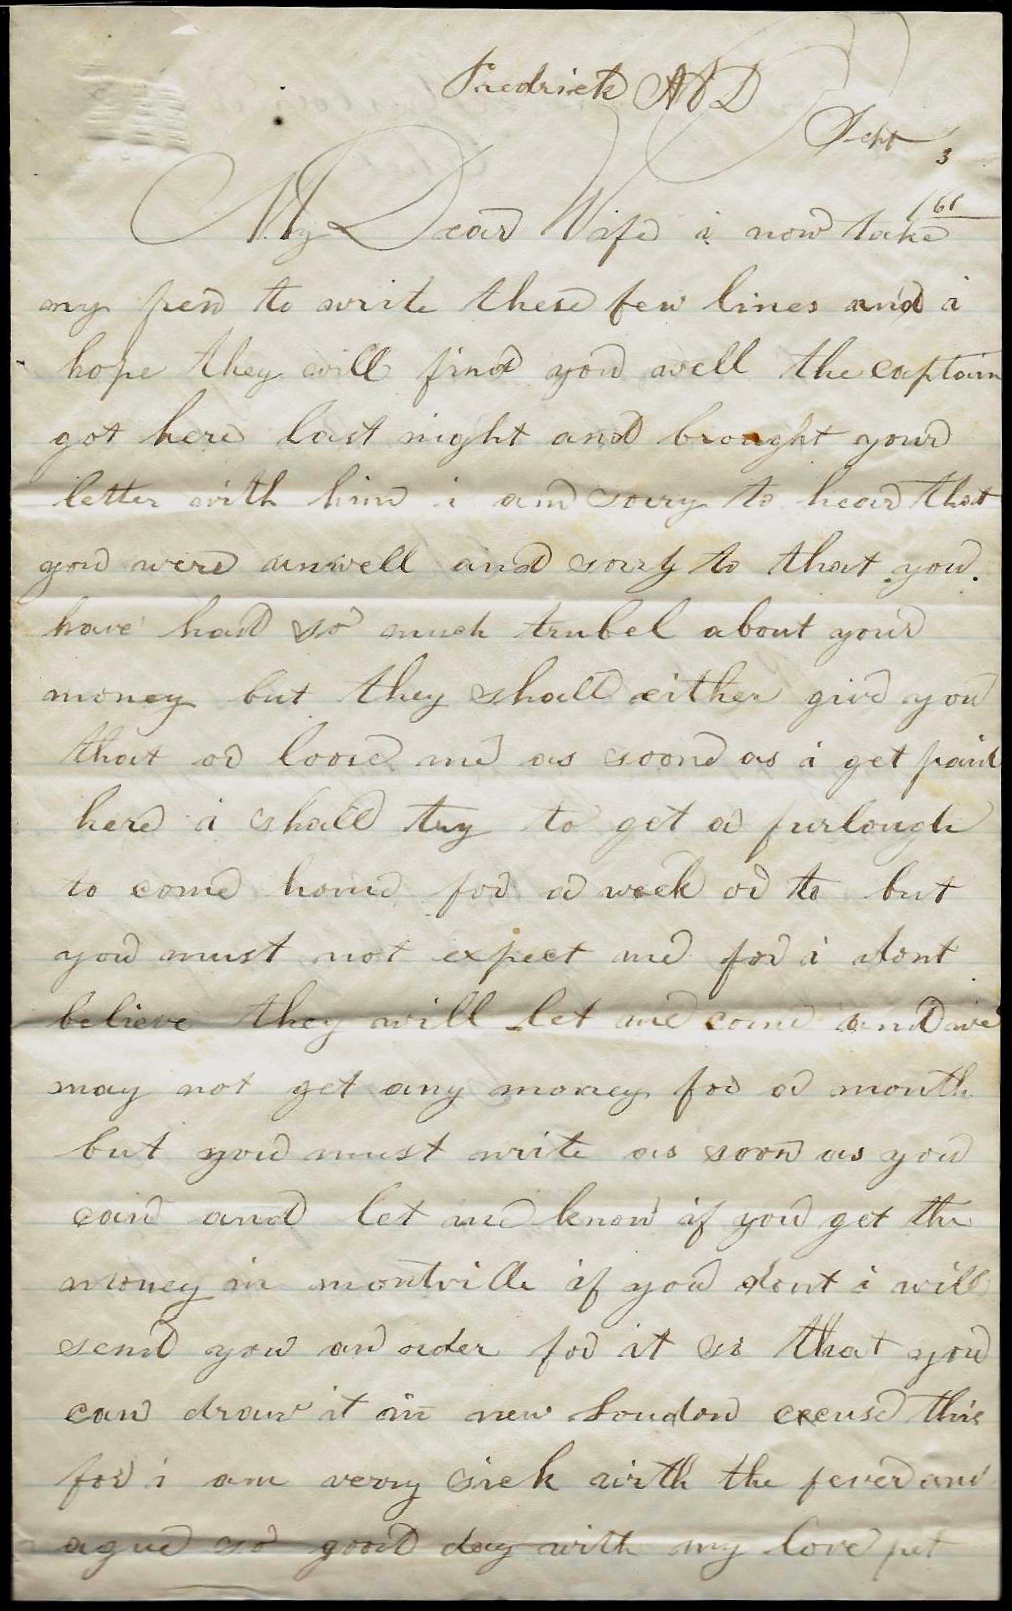 Fredrick MD
Sept 3
/61
My Dear Wife i now take
my pen to write these few lines and i
hope they will find you well the captain
got here last night and brought your
letter with him i am sorry to hear that
you were unwell and sorry to that you
have had so much trubel about your
money but they shall either give you
that or loose me as soone as i get paid
here i shall try to get a furlough
to come home for a week or to but
you must not expect me for i dont
believe they will let me come and we
may not get any money for a month
but you must write as soon as you
can and let me know if you get the
money in montville if you dont i will
send you an order for it so that you
can draw it in new london excuse this
for i am verry sick with the fever and
ague so good day with my love pet